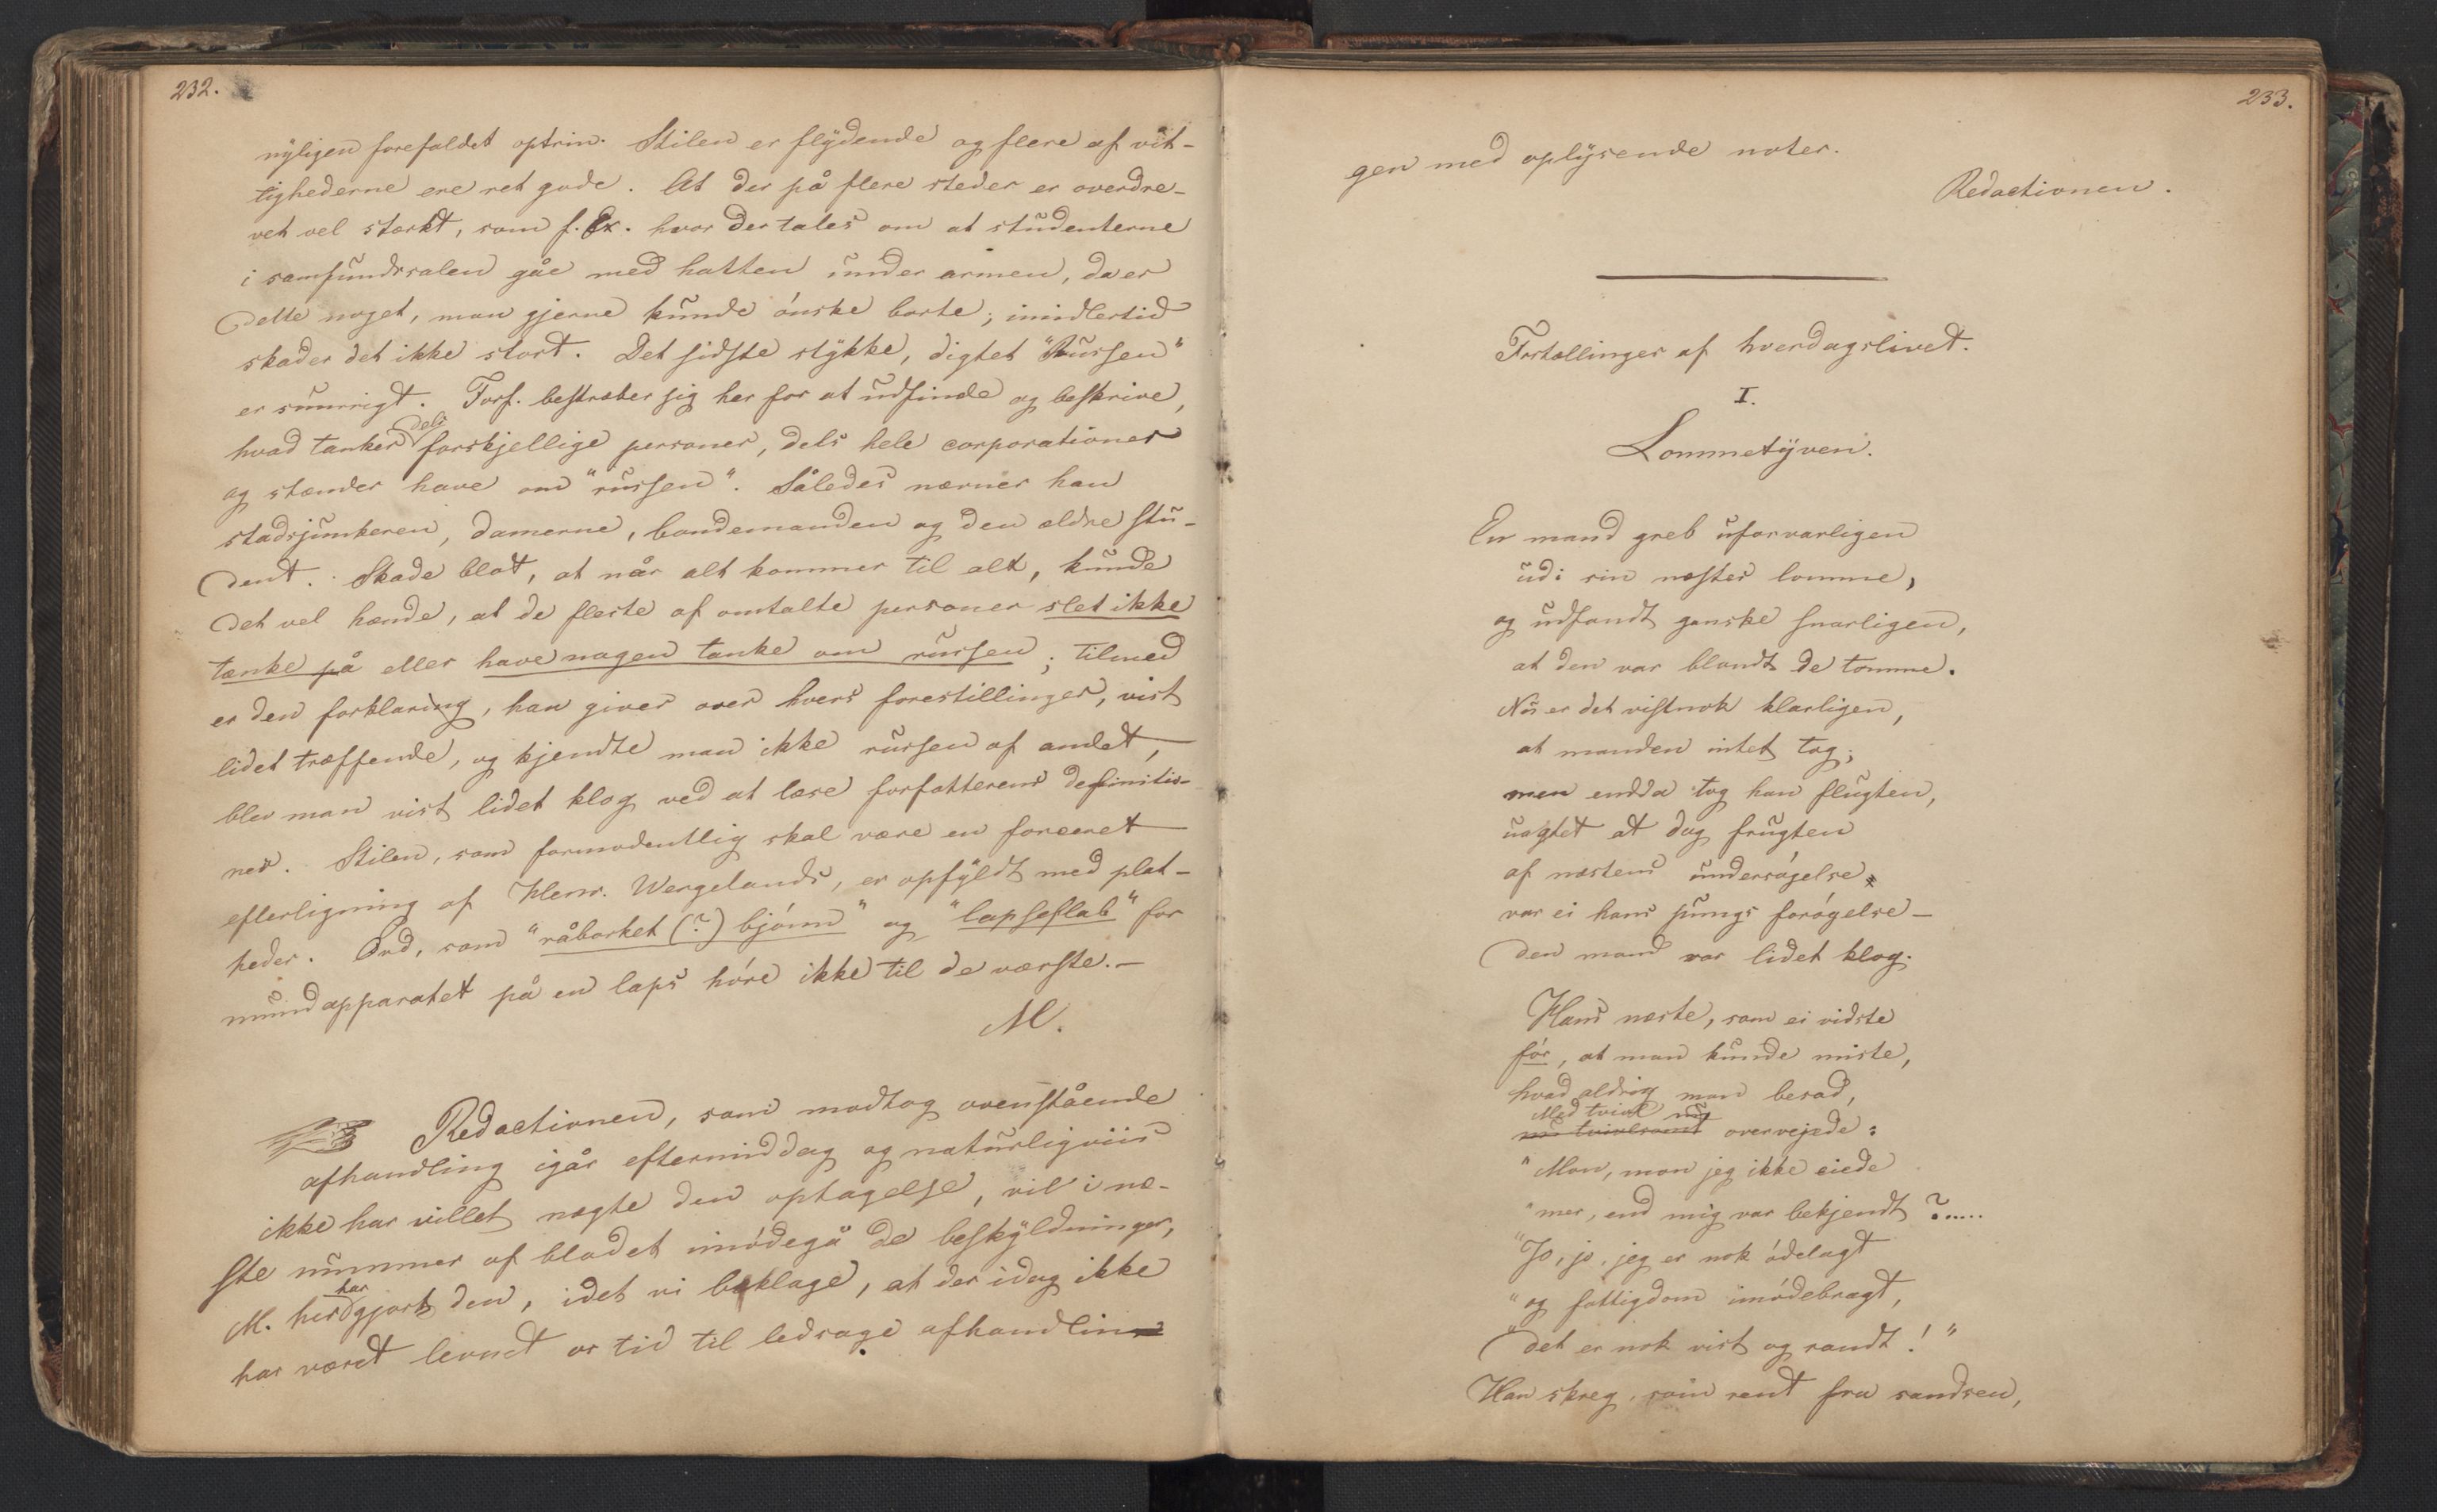 232.
nyligen forefaldet optrin. Stilen er flydende og flere af vit-
tighederne ere ret gode. At der på flere steder er overdre-
vet vel stærkt, som f. Ex. hvor der tales om at studenterne
i samfundssalen gåe med hatten under armen, da er
dette noget, man gjerne kunde ónske borte; imidlertid
skader det ikke stort. Det sidste stykke, digtet "Russen"
er snurrigt. Forf. bestræber sig her for at udfinde og beskrive,
hvad tanker dels forskjellige personer, dels hele corporationer
og stænder have om "russen". Således nævner han
stadsjunkeren, damerne, bondemanden og den ældre stu-
dent. Skade blot, at når alt kommer til alt, kunde
det vel hænde, at de fleste af omtalte personer slet ikke
tænke på eller have nogen tanke om russen; tilmed
er den forklaring, han giver over hvers forestillinger, vist
lidet træffende, og kjendte man ikke russen af andet,
blev man vist lidet klog ved at læse forfatterens definitio-
ner. Stilen, som formodentlig skal være en foræret
efterligning af Henr. Wergelands, er opfyldt med plat-
heder. Ord, som "råbarket (?) bjónn" og "lapseflab" for
mundapparatet på en laps hóre ikke til de værste.-
M.
Redactionen, som modtog ovenstående
afhandling igår eftermiddag og naturligviis
ikke har villet nægte den optagelse, vil i næ-
ste nummer af bladet imódegå de beskyldninger,
M. her har gjort den, idet vi beklage, at der idag ikke
har været levnet os tid til ledsage afhandlin
233.
gen med oplysende noter.
Redactionen.
Fortællinger af hverdagslivet.
I.
Lommetyven.
En mand greb uforvarligen
udi sin næstes lomme,
og udfandt ganske snarligen,
at den var blandt de tomme.
Nu er det vistnok klarligen,
at manden intet tog;
men endda tog han flugten,
uagtet at dog frugten
af næstens undersógelse
var ei hans pungs forógelse -
den mand var lidet klog.
Hans næste, som ei vidste
fór, at man kunde miste,
hvad aldrig man besad,
Med tvivl nu
nu tvivlsomt overvejede:
"Mon, mon jeg ikke eiede
"mer, end mig var bekjendt ?.....
"Jo, jo, jeg er nok ódelagt
"og fattigdom imódebragt,
"det er nok vist og sandt!"
Han skreg, som rent fra sandsen,